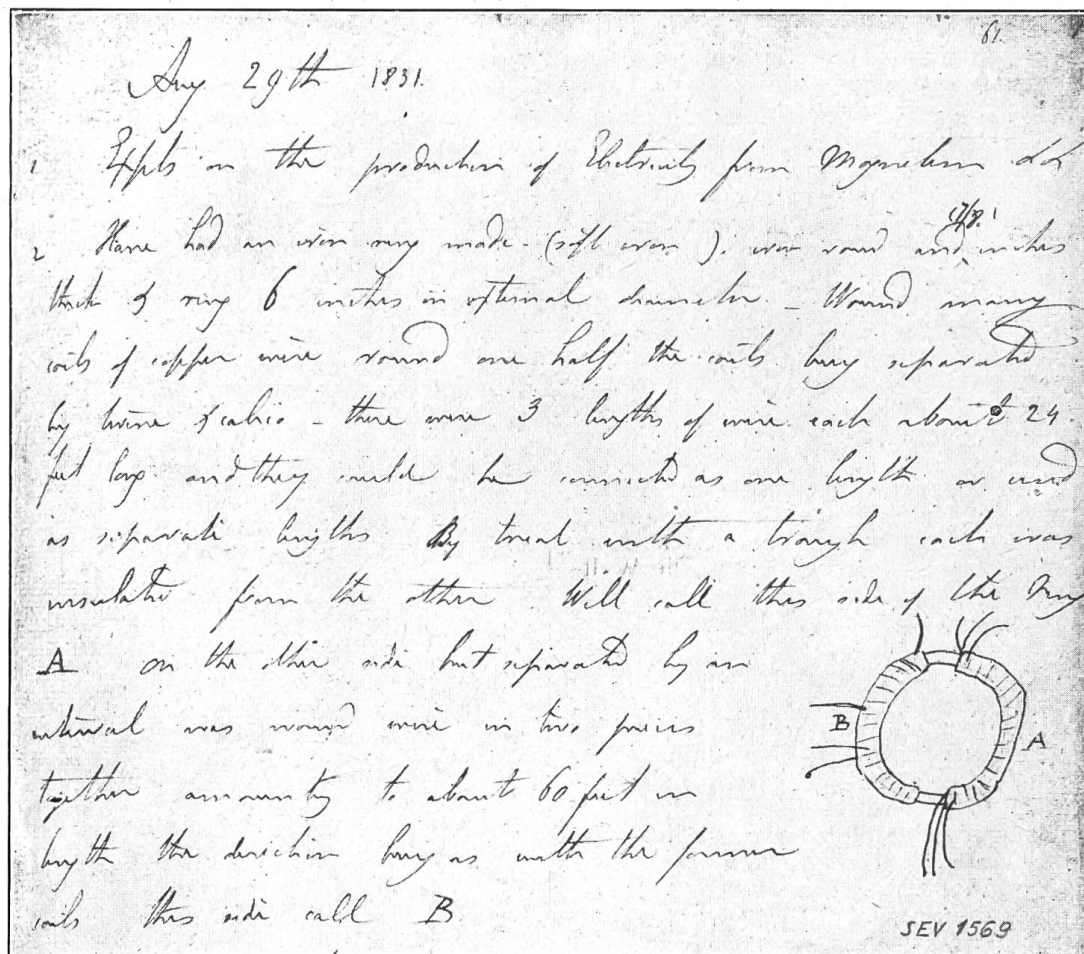 61.
Aug 29th 1831.
1 Expts on the production of Electricity from Magnetism &c &c
2 Have had an iron ring made (soft iron). iron round and 7/8 inches
thick & ring 6 inches in external diameter _ Wound many
coils of copper wire round one half the coils being separated
by twine & calico _ there were 3 lengths of wire each about 24
feet long and they could be connected as one length or used
as separate lengths By trial with a trough each was
insulated from the other Will call this side of the ring
A on the other side but separated by an
interval was wound wire in two pieces
together amounting to about 60 feet in
length the direction being as with the former
coils this side call B
B
A
SEV 1569